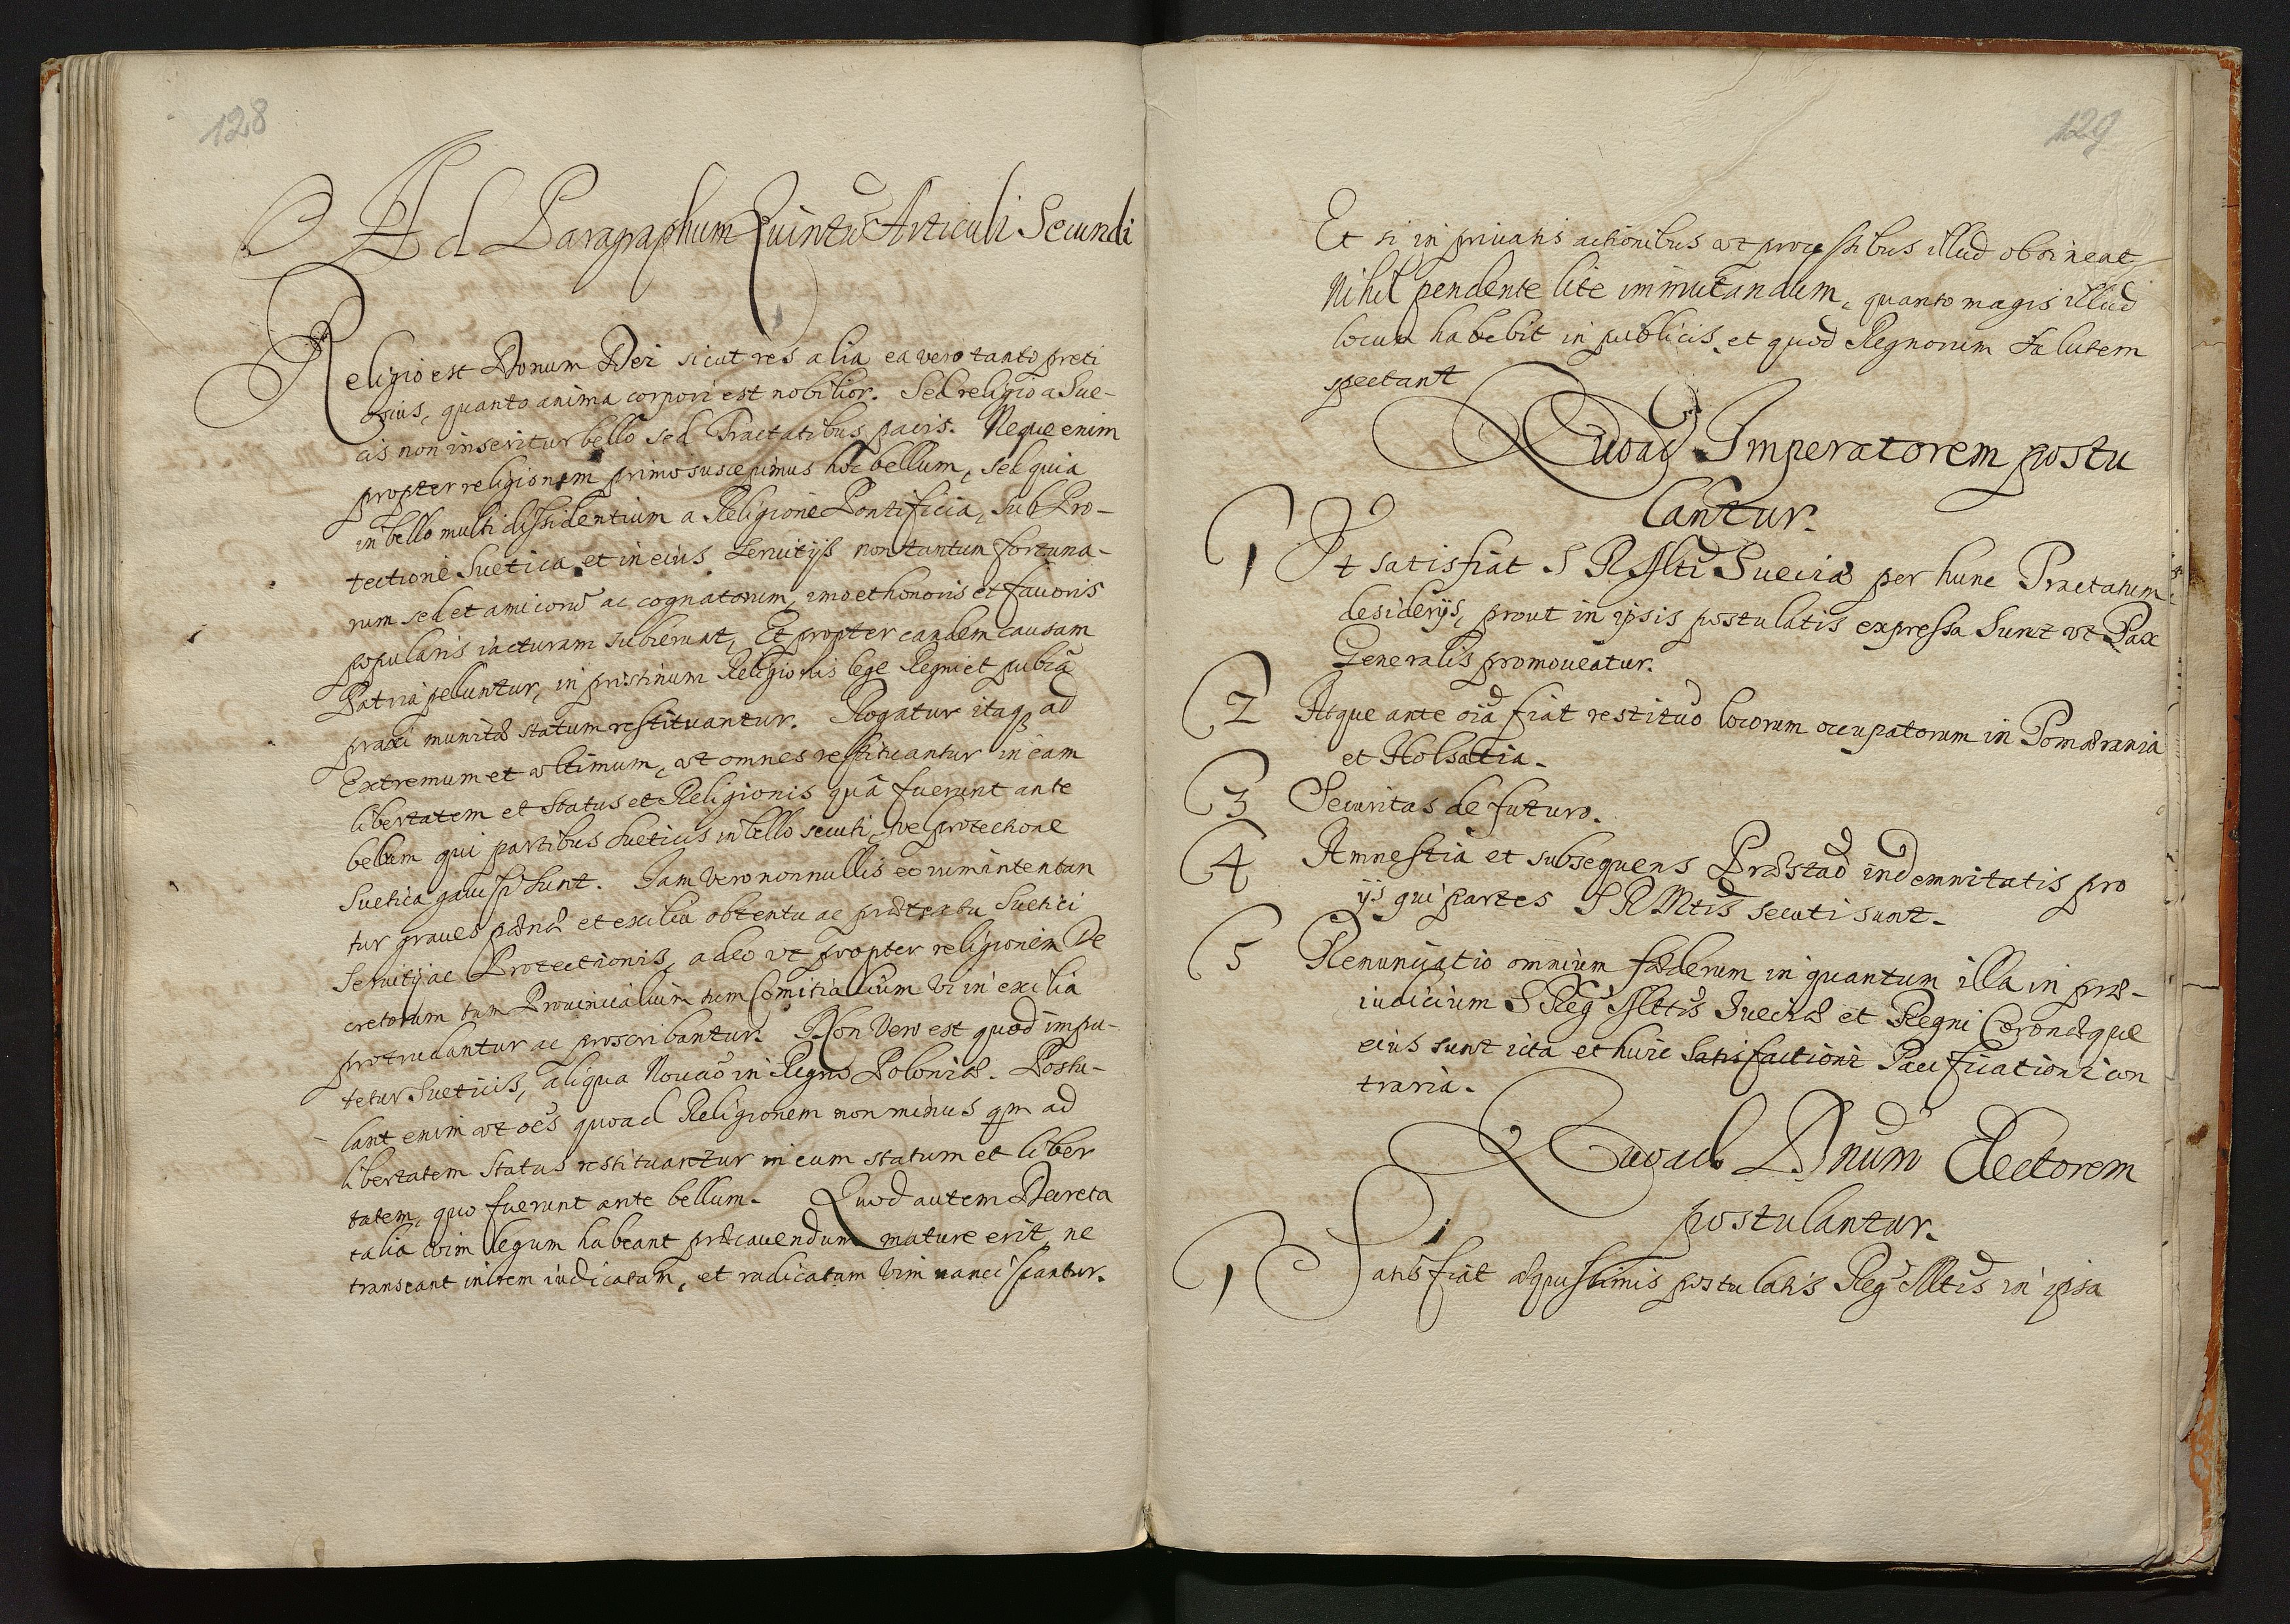 128
Ad Paragraphum Quintũ Articuli Secundi
Religio est Donum Dei sicut res alia ea vero tanto preti
osius, quanto anima corpori est nobilior. Sed religio a Sue-
cis non inseritur bello sed Tractatibus pacis. Neque enim
propter religionem primo suscepimus hoc bellum, sed quia
in bello multi dissidentium a Religione Pontificia, sub Pro-
tectione Suetica et in eius Seruitijs non tantum fortuna-
rum sed et amicorũ ac cognatorum, imo et honoris et fauoris
popularis iacturam subierunt, Et propter eandem causam
Patria pelluntur, in pristinum Religionis lege Regni et publã
praxi munitæ statum restituantur. Rogatur itaq ad
Extremum et vltimum, vt omnes restituantur in eam
libertatem et status et Religionis quâ fuerunt ante
bellum qui partibus Sueticis in bello secuti, vel protectione
Suetica gauisi sunt. Iam vero nonnullis eorum intentan
tur graues pœnæ et exilia obtentu ac prætextu Suetici
Seruitij ac Protectionis, adeo vt propter religionem De
cretorum tum Prouincialium tum Comitialium vi in exilia
protrudantur ac proscribantur. Non Vero est quod impu-
tetur Sueticis, aliqua Nouaõ in Regno Poloniæ. Postu-
lant enim vt oẽs quoad Religionem non minus qm ad
libertatem Status restituantur in eum statum et liber
tatem, quo fuerunt ante bellum. Quod autem Decreta
talia vim legum habeant præcauendum mature erit, ne
transeant in rem iudicatam, et radicatam vim nanciscantur.
129
Et si in priuatis actionibus vt processibus illud obtineat
Nihil pendente lite immutandum, quanto magis illud
locum habebit in publicis et quod Regnorum salutem
spectant
Quoad Imperatorem postu
lantur.
1 Vt satisfiat S R Mti Sueciæ per hunc Tractatum
desiderijs, prout in ipsis postulatis expressa sunt vt Pax
Generalis promoueatur.
2 Atque ante oĩa fiat restituõ locorum occupatorum in Pomærania
et Holsatia.
3 Securitas de futuro.
4 Amnestia et subsequens Præstaõ indemnitatis pro
ijs qui partes S R Mtis secuti sunt.
5 Renunciatio omnium fœderum in quantum illa in præ-
iudicium S Reg Mttis Sueciæ et Regni Coronæque
eius sunt icta et huic Satisfactioni Pacificationi con
traria.
Quoad Dnum Electorem
postulantur.
1 Satisfiat æquissimis postulatis Reg Mttis in ipsa